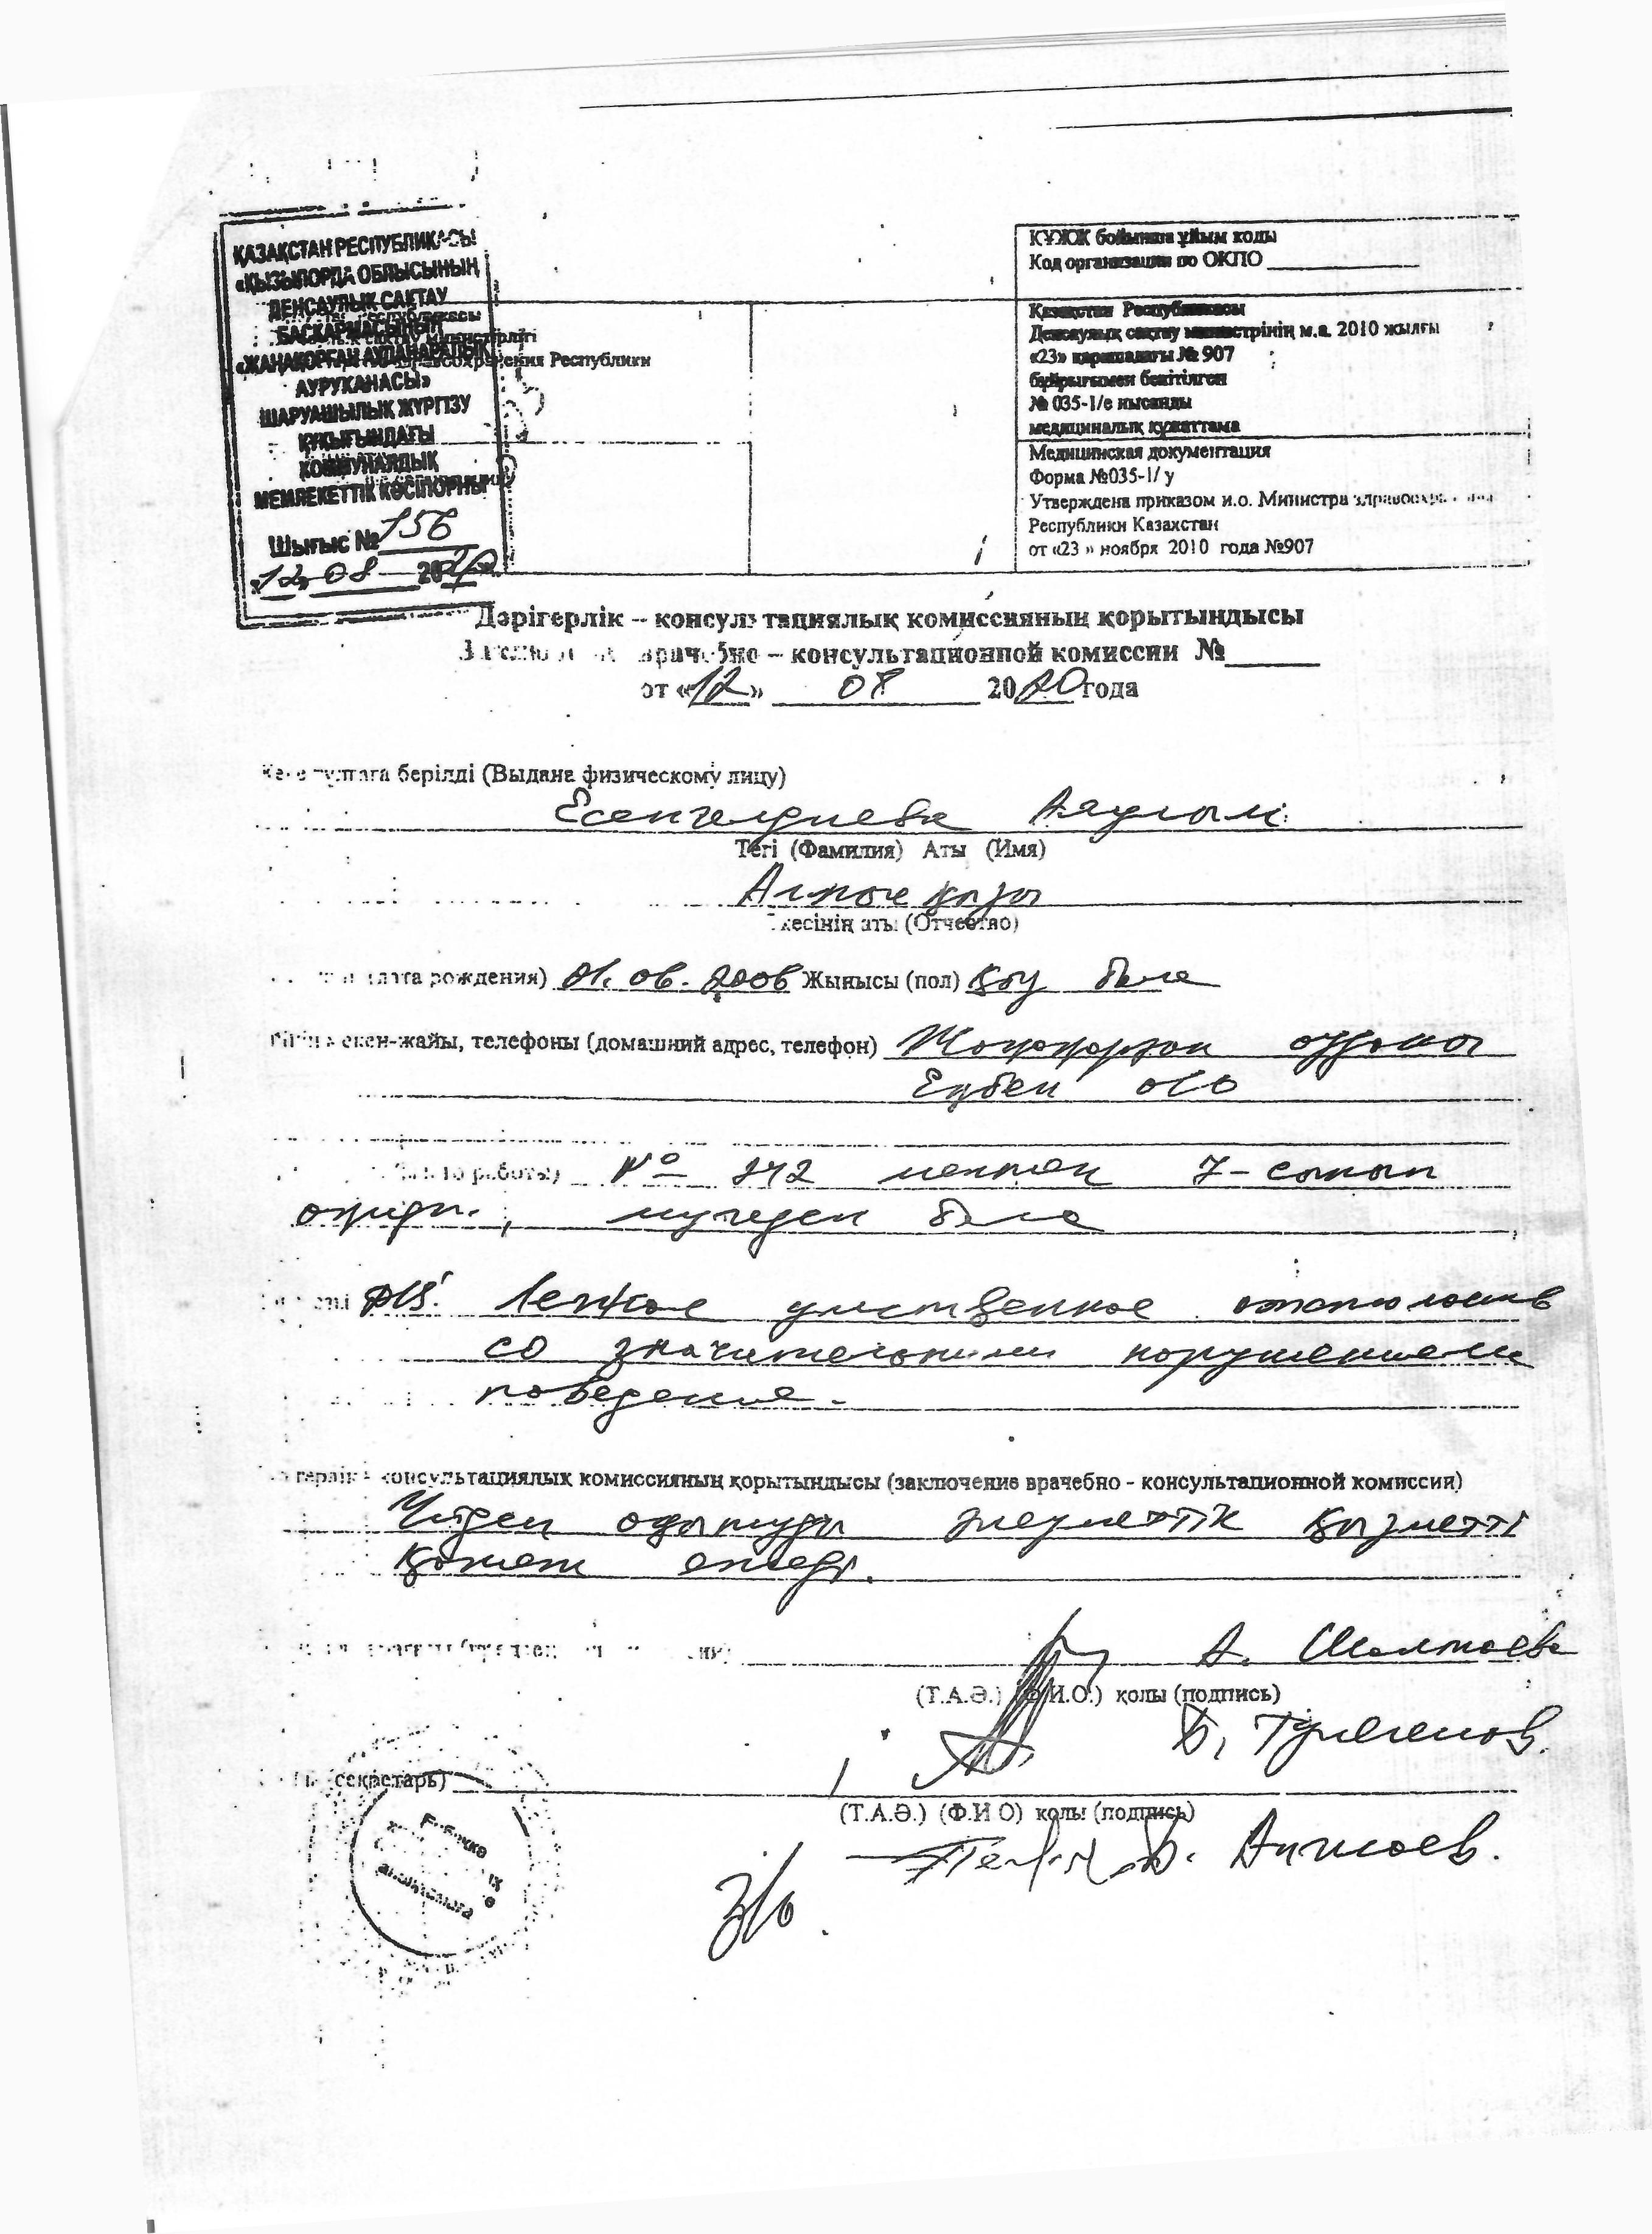 ҚАЗАҚСТАН РЕСПУБЛИКАСЫ
«ҚЫЗЫЛОРДА ОБЛЫСЫНЫҢ
ДЕНСАУЛЫҚ САҚТАУ
БАСҚАРМАСЫНЫҢ
«ЖАҢАҚОРҒАН АУДАНАРАЛЫҚ
АУРУХАНАСЫ»
ШАРУАШЫЛЫҚ ЖҮРГІЗУ
ҚҰҚЫҒЫНДАҒЫ
КОММУНАЛДЫҚ
МЕМЛЕКЕТТІК КӘСІПОРНЫ
Шығыс № 156
«12» 08 2020
Республики
ҚҰЖЖ бойынша ұйым коды
Код организации по ОКПО
Қазақстан Республикасы
Денсаулық сақтау министрінің м.а. 2010 жылғы
«23» қарашадағы № 907
бұйрығымен бекітілген
№ 035-1/е нысанды
медициналық құжаттама
Медицинская документация
Форма №035-1/ у
Утверждена приказом и.о. Министра здравоохранения
Республики Казахстан
от «23 » ноября 2010 года №907
Дәрігерлік – консультациялық комиссияның қорытындысы
врачебно – консультационной комиссии №
от «12» 08 2020 года
берілді (Выдана физическому лицу)
Есенгелдиева Аяулым
Тегі (Фамилия) Аты (Имя)
қызы
аты (Отчество)
дата рождения) 01.06.2006 Жынысы (пол) қыз бала
мекен-жайы, телефоны (домашний адрес, телефон) Жаңақорған ауданы
Еңбек а/о
работы) № 242 мектеп 7-сынып
оқиды, мүгедек бала
DS: Легкое умственное отсталость
со значительными нарушением
поведения.
консультациялық комиссияның қорытындысы (заключение врачебно - консультационной комиссии)
Үйден оқытуды әлеуметтік қызметті
қажет етеді.
А. Шалтаева
(Т.А.Ә.) (Ф.И.О.) қолы (подпись)
Б. Тулегенов.
секретарь)
(Т.А.Ә.) (Ф.И О) қолы (подпись)